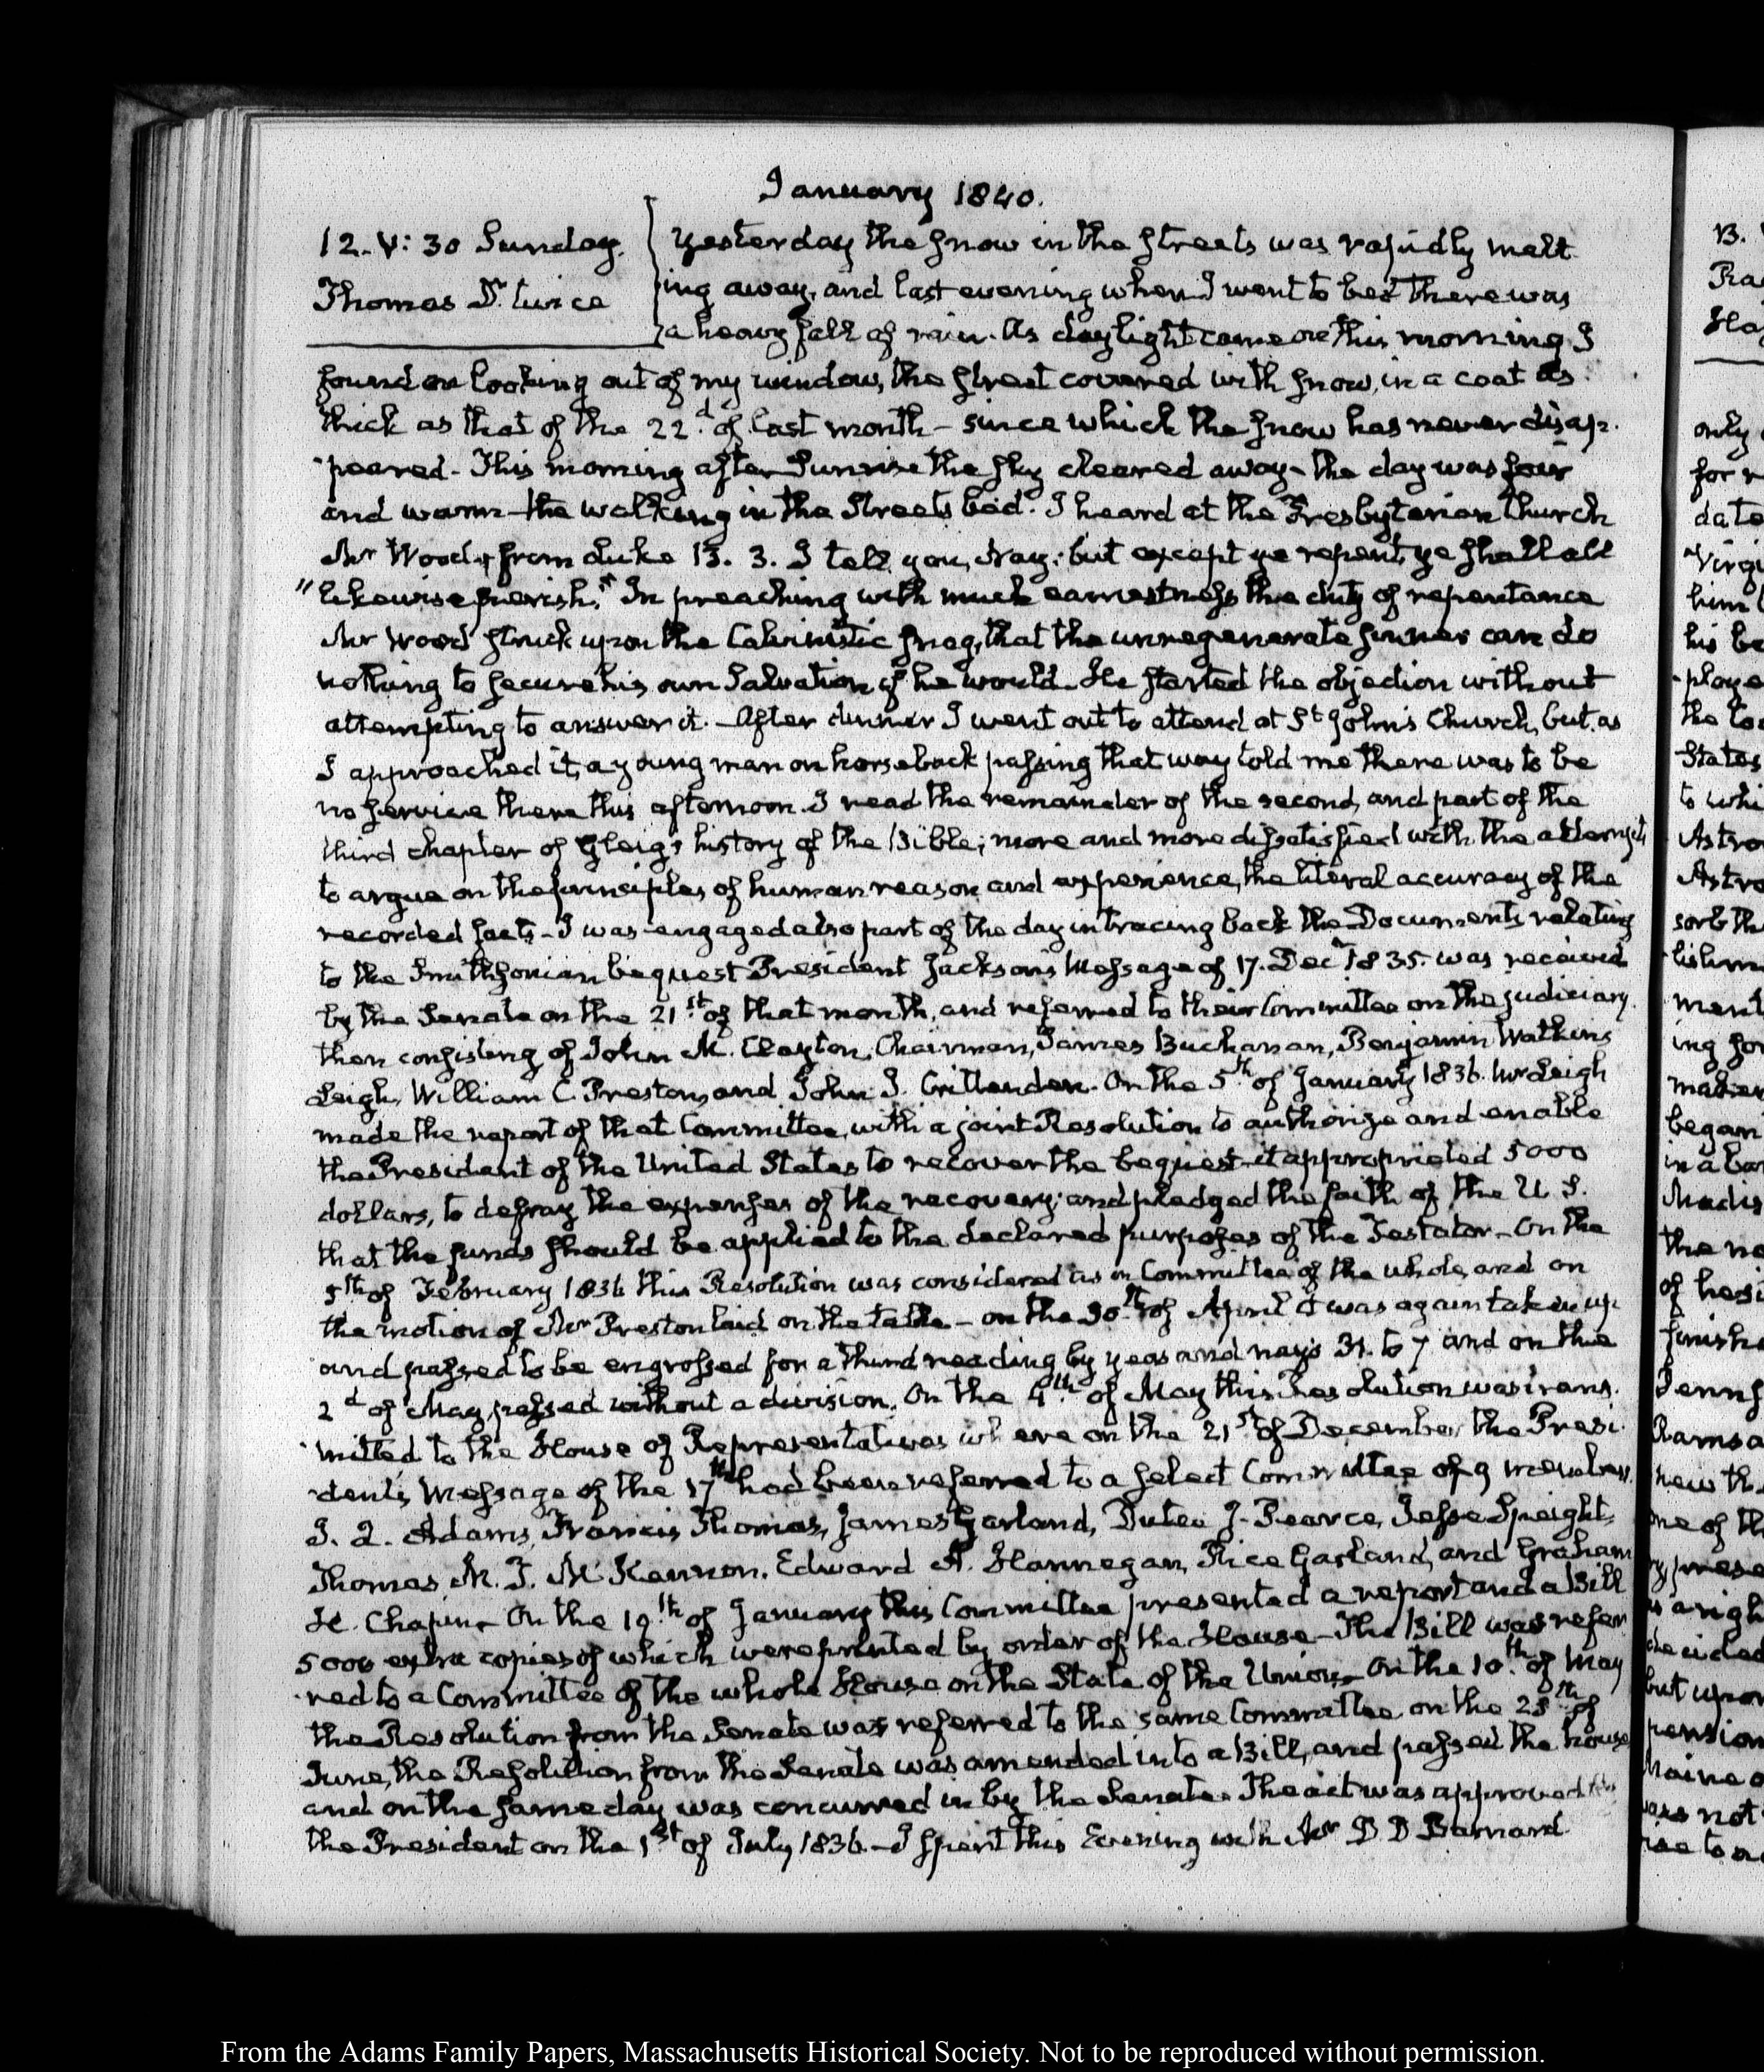 January 1840.
12. V: 30 Sunday.
Thomas D. twice
Yesterday the snow in the streets was rapidly melt
ing away, and last evening when I went to bed there was
a heavy fall of rain. As daylight came on this morning I
found on looking out of my window, the street covered with snow, in a coat as
thick as that of the 22d. of last month – since which the snow has never disap-
peared – This morning after Sunrise the sky cleared away – the day was fair
and warm – the walking in the Streets bad. I heard at the Presbyterian Church
Mr Wood, from Luke 13. 3. I tell you, Nay: but except ye repent, ye shall all
"likewise perish." In preaching with much earnestness the duty of repentance
Mr Wood struck upon the Calvinistic snag, that the unregenerate sinner can do
nothing to secure his own Salvation if he would. He started the objection without
attempting to answer it. – After dinner I went out to attend at St. John's Church, but as
I approached it, a young man on horseback passing that way told me there was to be
no service there this afternoon. I read the remainder of the second, and part of the
third chapter of Gleig's history of the Bible; more and more dissatisfied with the attempt
to argue on the principles of human reason and experience, the literal accuracy of the
recorded facts – I was engaged also part of the day in tracing back the Documents relating
to the Smithsonian bequest President Jackson's Message of 17. Decr 1835. was received
by the Senate on the 21st. of that month, and referred to their Committee on the judiciary.
then consisting of John M. Clayton, Chairman, James Buchanan, Benjamin Watkins
Leigh, William C. Preston, and John J. Crittenden. On the 5th of January 1836. Mr Leigh
made the report of that Committee, with a joint Resolution to authorize and enable
the President of the United States to recover the bequest – it appropriated 5000
dollars, to defray the expenses of the recovery; and pledged the faith of the U. S.
that the funds should be applied to the declared purposes of the Testator – On the
5th of February 1836 this Resolution was considered as in Committee of the whole, and on
the motion of Mr Preston laid on the table – on the 30th. of April it was again taken up
and passed to be engrossed for a third reading by yeas and nays 31. to 7 and on the
2d of May passed without a division. On the 4th. of May this Resolution was trans-
mitted to the House of Representatives where on the 21st of December, the Presi-
dent's Message of the 17th had been referred to a select Committee of 9 members
J. Q. Adams, Francis Thomas, James Garland, Dutee J. Pearce, Jesse Speight,
Thomas M. T. McKennon, Edward A. Hannegan, Rice Garland, and Graham
H. Chapin – On the 19th. of January this Committee presented a report and a Bill
5000 extra copies of which were printed by order of the House – The Bill was refer-
red to a Committee of the whole House on the State of the Union – On the 10th. of May
the Resolution from the Senate was referred to the same Committee, on the 28th. of
June, the Resolution from the Senate was amended into a Bill, and passed the house
and on the same day was concurred in by the Senate. The act was approved
the President on the 1st of July 1836. – I spent this Evening with Mr D D Barnard.
From the Adams Family Papers, Massachusetts Historical Society. Not to be reproduced without permission.